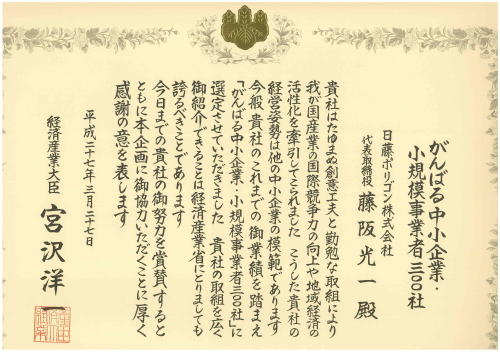 がんばる中小企業・
小規模事業者三〇〇社
日藤ポリゴン株式会社
代表取締役 藤阪光一殿
貴社はたゆまぬ創意工夫と勤勉な取組により
我が国産業の国際競争力の向上や地域経済の
活性化を牽引してこられました こうした貴社の
経営姿勢は他の中小企業の模範であります
今般 貴社のこれまでの御業績を踏まえ
「がんばる中小企業・小規模事業者三〇〇社」に
選定させていただきました 貴社の取組を広く
御紹介できることは経済産業省にとりましても
誇るべきことであります
今日までの貴社の御努力を賞賛するとともに
本企画に御協力いただくことに厚く
感謝の意を表します
平成二十七年三月二十七日
経済産業大臣 宮沢洋一